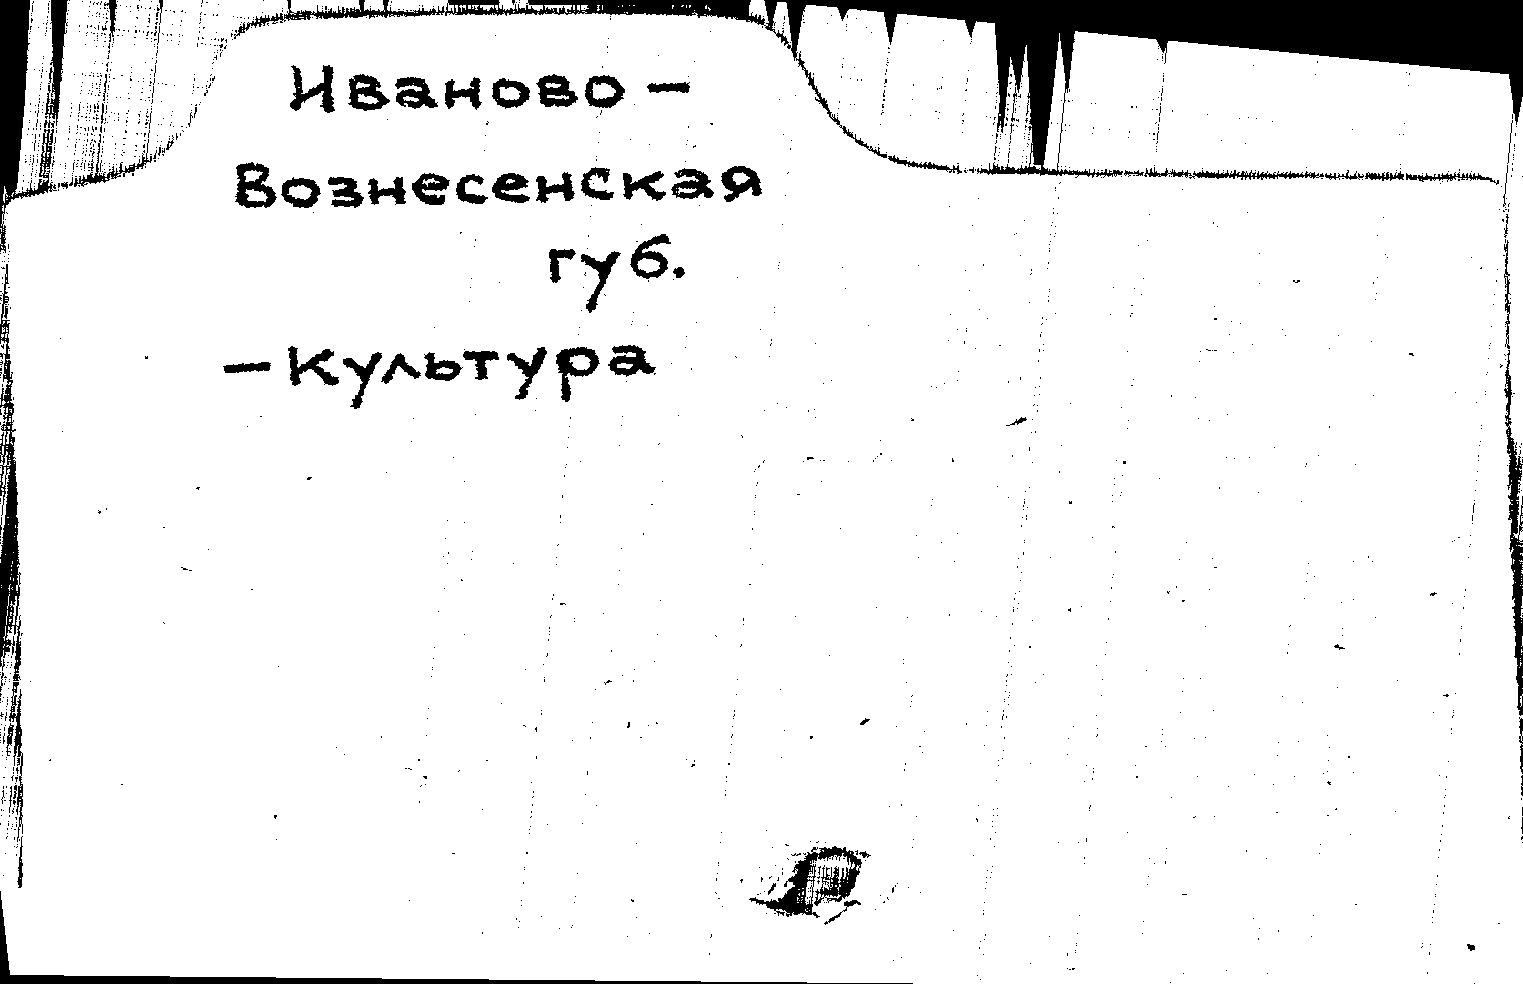 Иваново –
Вознесенская
губ.
– Культура